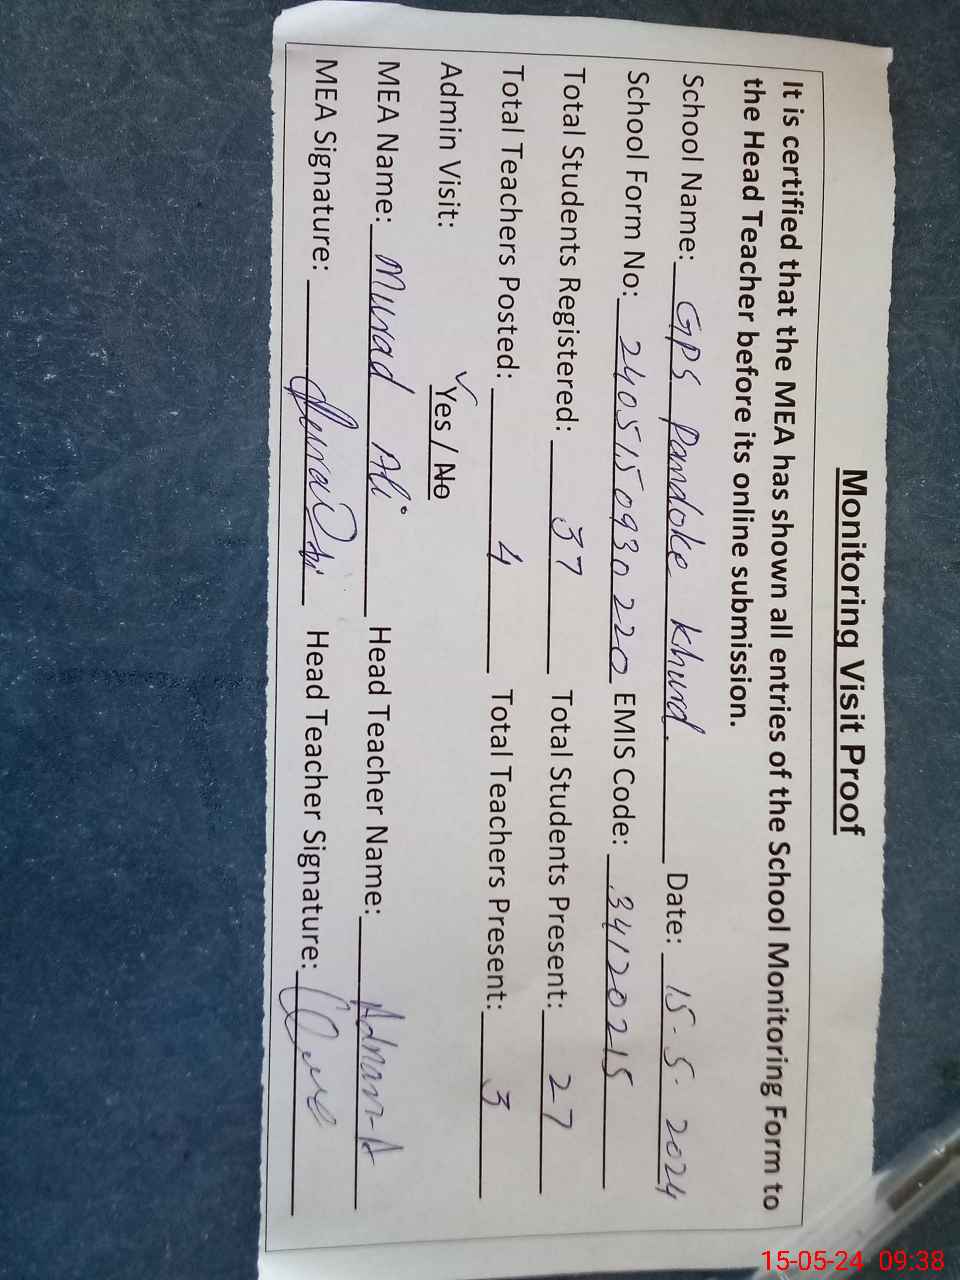 Monitoring Visit Proof
It is certified that the MEA has shown all entries of the School Monitoring Form to
the Head Teacher before its online submission.
School Name: GPS Pandoke Khurd. Date: 15.5.2024
School Form No: 2405150930220 EMIS Code: 34120215
Total Students Registered: 37 Total Students Present: 27
Total Teachers Posted: 4 Total Teachers Present: 3
Admin Visit: ✓Yes / No
MEA Name: Murad Ali Head Teacher Name: Adnan-A
MEA Signature: Head Teacher Signature:
15-05-24 09:38